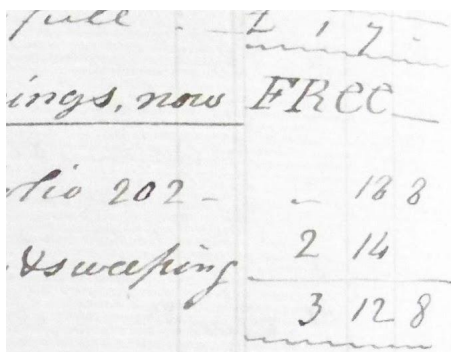 full - 1 7 -
ings, now FRee
olio 202 - - 18 8
&sweeping 2 14
3 12 8